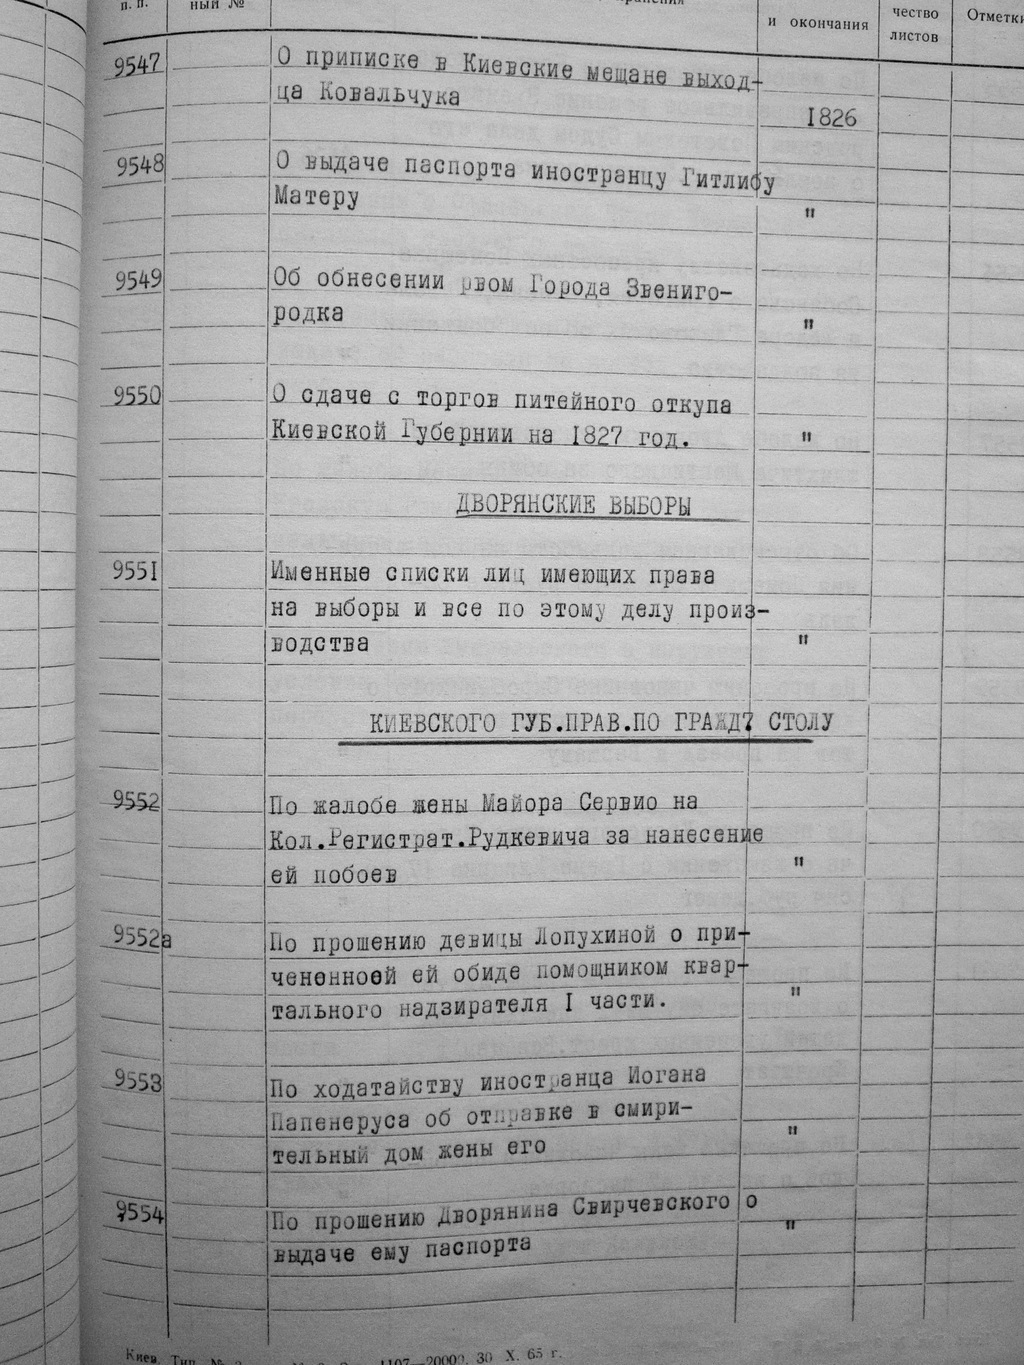 п.п.
ный №
и окончания
чество
листов
Отметки
9547
О приписке в Киевские мещане выход-
ца Ковальчука
1826
9548
О выдаче паспорта иностранцу Гитлибу
Матеру
"
9549
Об обнесении рвом Города Звениго-
родка
"
9550
О сдаче с торгов питейного откупа
Киевской Губернии на I827 год.
"
ДВОРЯНСКИЕ ВЫБОРЫ
9551
Именные списки лиц имеющих права
на выборы и все по этому делу произ-
водства
"
КИЕВСКОГО ГУБ.ПРАВ.ПО ГРАЖД7 СТОЛУ
9552
По жалобе жены Майора Сервио на
Кол.Регистрат.Рудкевича за нанесение
ей побоев
"
9552а
По прошению девицы Лопухиной о при-
чененноей ей обиде помощником квар-
тального надзирателя I части.
"
9553
По ходатайству иностранца Иогана
Папенеруса об отправке в смири-
тельный дом жены его
"
9554
По прошению Дворянина Свирчевского о
выдаче ему паспорта
"
Киев. Тип. № 1107—20000. 30 X. 65 г.